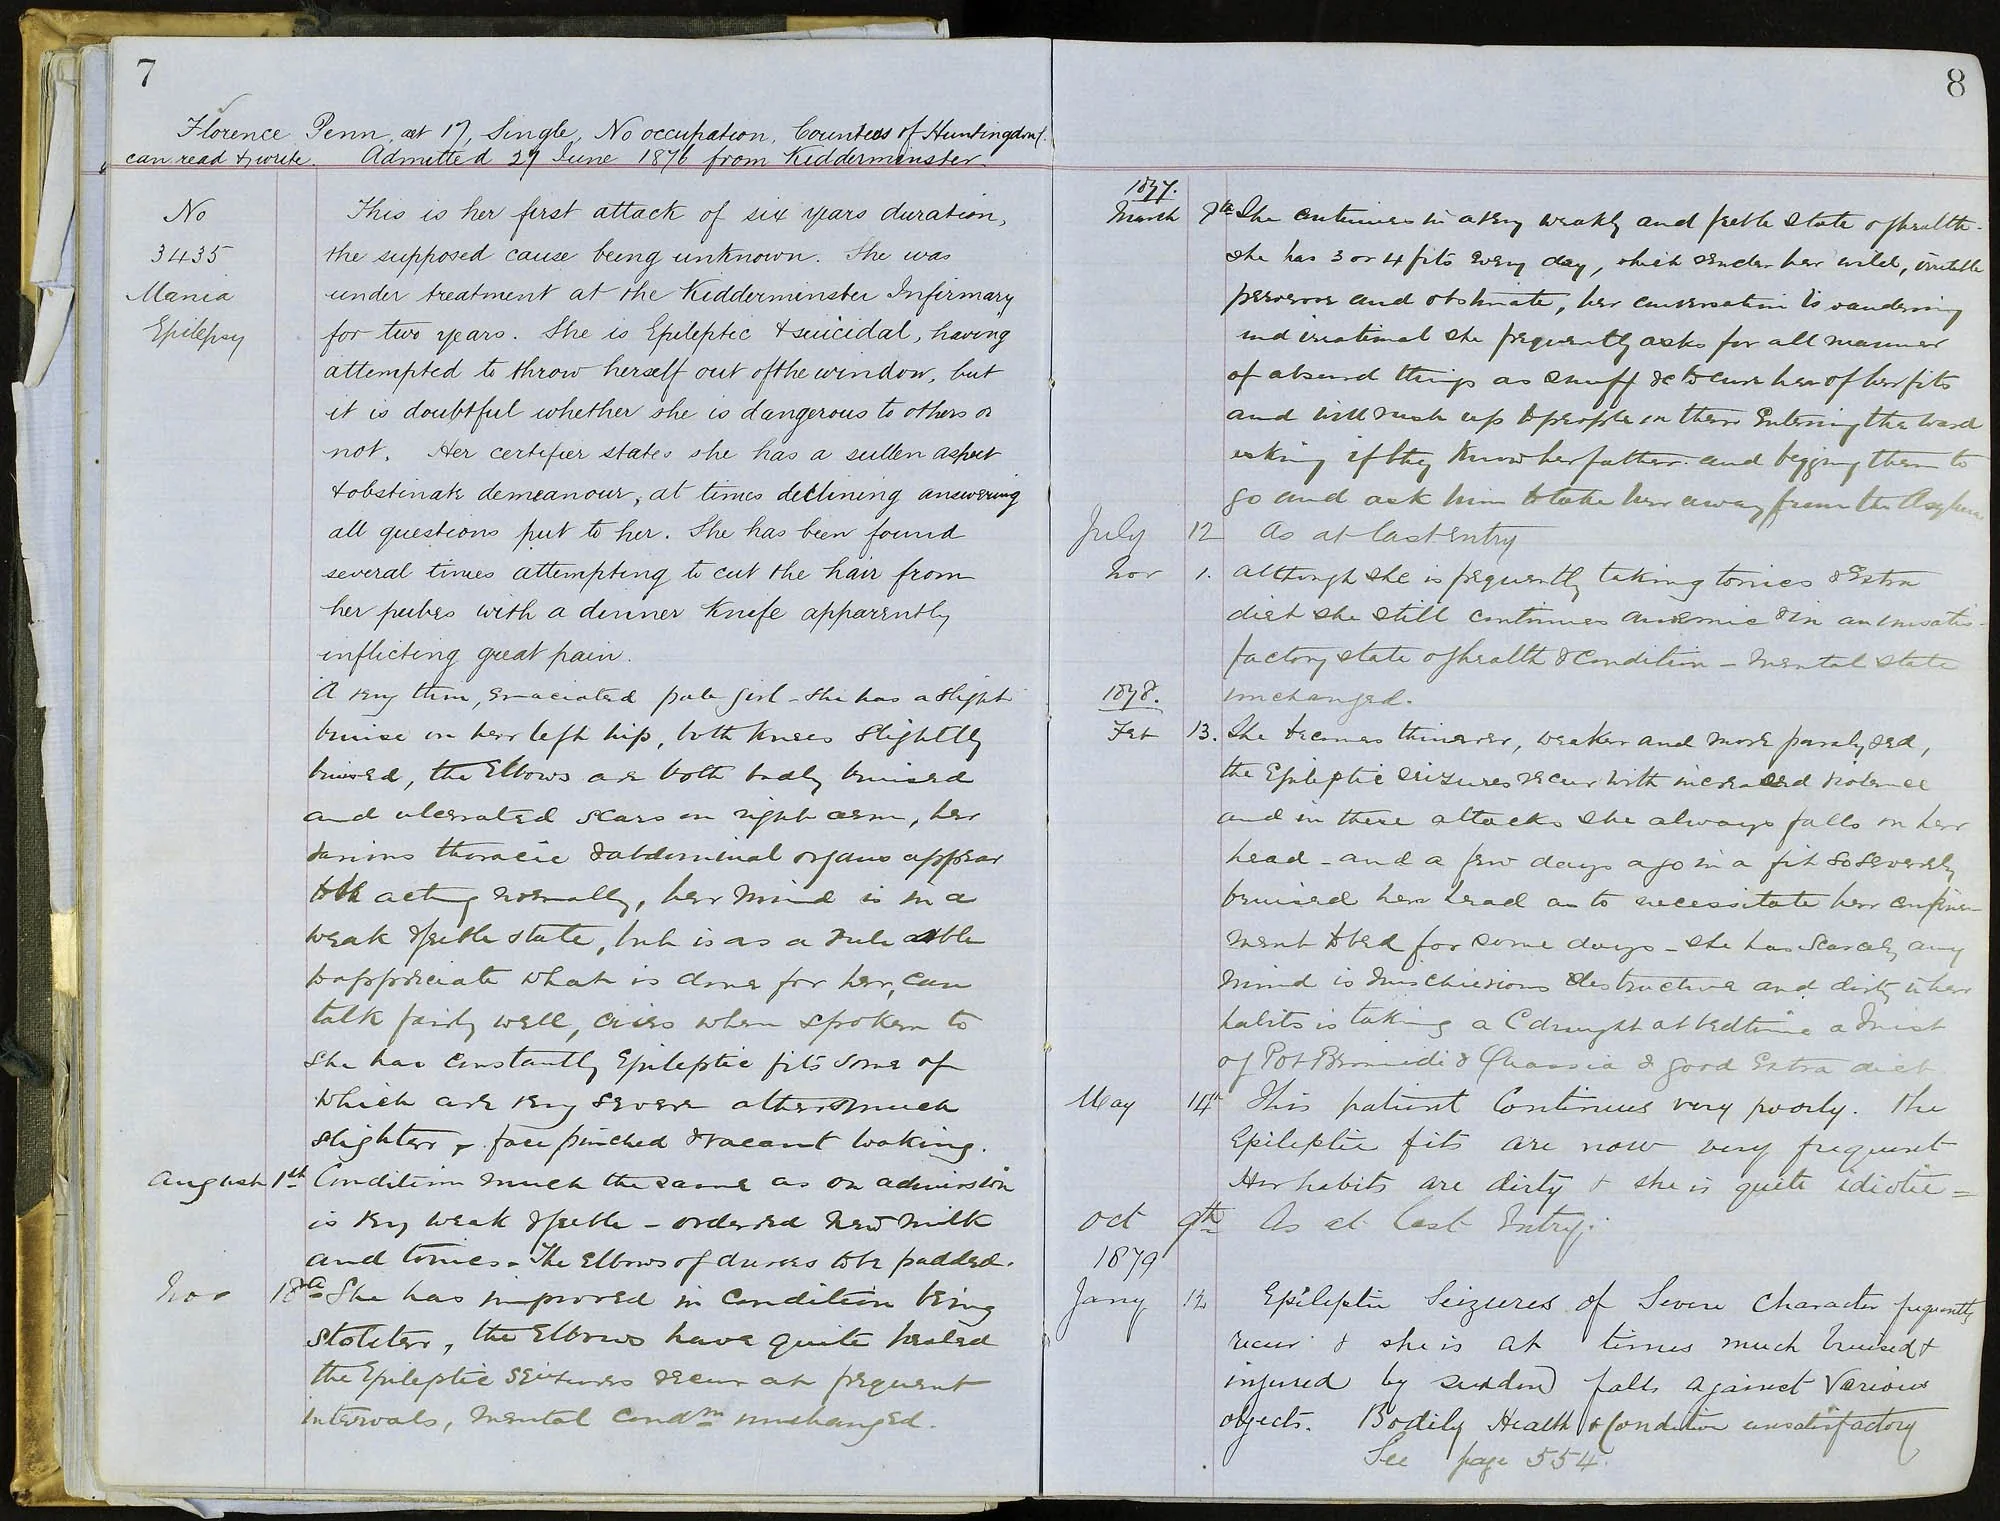 7
Florence Penn æt 17, Single, No occupation, Countess of Huntingdon(.
can read & write. Admitted 27 June 1876 from Kidderminster
No
3435
Mania
Epilepsy
This is her first attack of six years duration,
the supposed cause being unknown. She was
under treatment at the Kidderminster Infirmary
for two years. She is Epileptic & suicidal, having
attempted to throw herself out of the window, but
it is doubtful whether she is dangerous to others or
not. Her certifier states she has a sullen aspect
& obstinate demeanour, at times declining answering
all questions put to her. She has been found
several times attempting to cut the hair from
her pubes with a dinner Knife apparently
inflicting great pain.
A very thin, emaciated pale girl - she has a slight
bruise on her left hip, both knees slightly
bruised, the Elbows are both badly bruised
and ulcerated scars on right arm, her
various thoracic & abdominal organs appear
to be acting normally, her mind is in a
weak & feeble state, but is as a rule able
to appreciate what is done for her, can
talk fairly well, cries when spoken to
she has constantly Epileptic fits some of
which are very severe others much
slighter, face pinched & vacant looking.
August 1st Condition much the same as on admission
is very weak & feeble - ordered New milk
and tonics - The Elbows of dresses to be padded.
Nov 18th She has improved in condition being
stouter, the Elbows have quite healed
the Epileptic seizures recur at frequent
intervals, mental condn unchanged.
8
1877.
March 7th She continues in a very weakly and feeble state of health -
she has 3 or 4 fits every day, which render her wild, irritable
perverse and obstinate, her conversation is wandering
and irrational she frequently asks for all manner
of absurd things as snuff &c to cure her of her fits
and will rush up to people on them Entering the ward
asking if they know her father and begging them to
go and ask him to take her away from the Asylum
July 12 As at last entry
Nov 1. Although she is frequently taking tonics & Extra
diet she still continues anaemic & in an unsatis-
factory state of health & condition - mental state
unchanged.
1878.
Feb 13. She becomes thinner, weaker and more paralysed,
the Epileptic seizures recur with increased violence
and in these attacks she always falls on her
head - and a few days ago in a fit so severely
bruised her head as to necessitate her confine-
ment to bed for some days - she has scarcely any
mind is mischievous destructive and dirty in her
habits is taking a C draught at bedtime a Mist
of Pot Bromidi & Quassia & good Extra diet
May 14th This patient continues very poorly. The
Epileptic fits are now very frequent
Her habits are dirty & she is quite idiotic =
Oct 9th As at last Entry.
1879
Jany 12 Epileptic Seizures of Severe Character frequently
recur & she is at times much bruised &
injured by sudden falls against various
objects. Bodily Health & Condition unsatisfactory
See page 554.